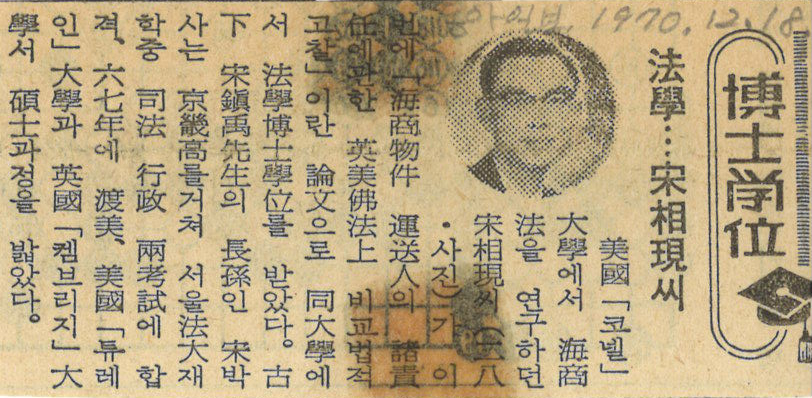 1970.12.18
博士学位
法學…宋相現씨
美國「코넬」
大學에서 海商
法을 연구하던
宋相現씨 (二八
·사진)가 이
번에 「海商物件 運送人의 諸責
任에관한 英美佛法上 비교법적
고찰」이란 論文으로 同大學에
서 法學博士學位를 받았다。古
下 宋鎭禹先生의 長孫인 宋박
사는 京畿高를거쳐 서울法大재
학중 司法 行政 兩考試에 합
격、六七年에 渡美、美國「튜레
인」大學과 英國「켐브리지」大
學서 碩士과정을 밟았다。